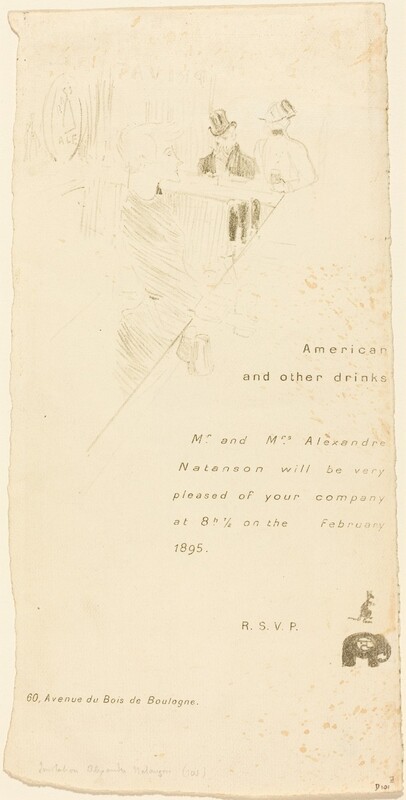 ALE
American
and other drinks
Mr and Mrs Alexandre
Natanson will be very
pleased of your company
at 8h ½ on the February
1895.
R. S. V. P.
60, Avenue du Bois de Boulogne.
Invitation Alexandre Natanson (101)
D 101